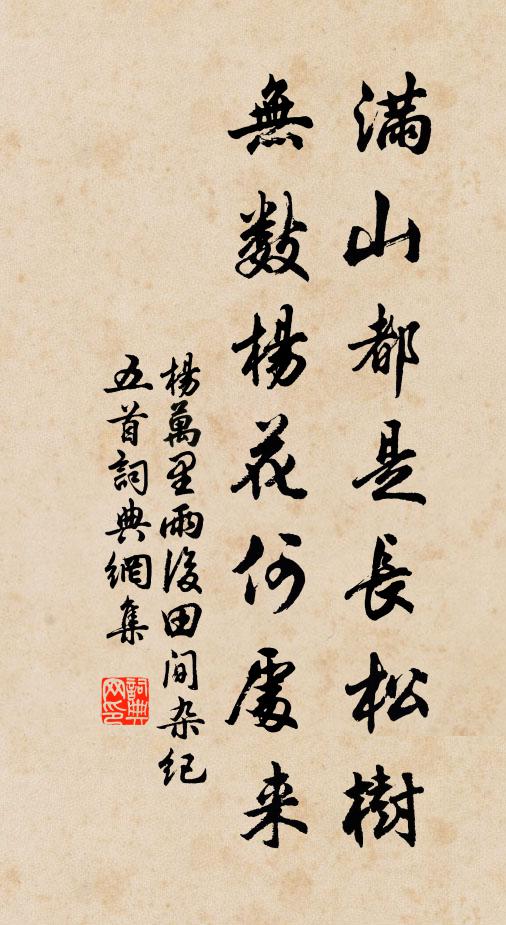 滿山都是長松樹
無數楊花何處来
楊萬里雨後田間杂紀
五首詞典網集
詞典
网印